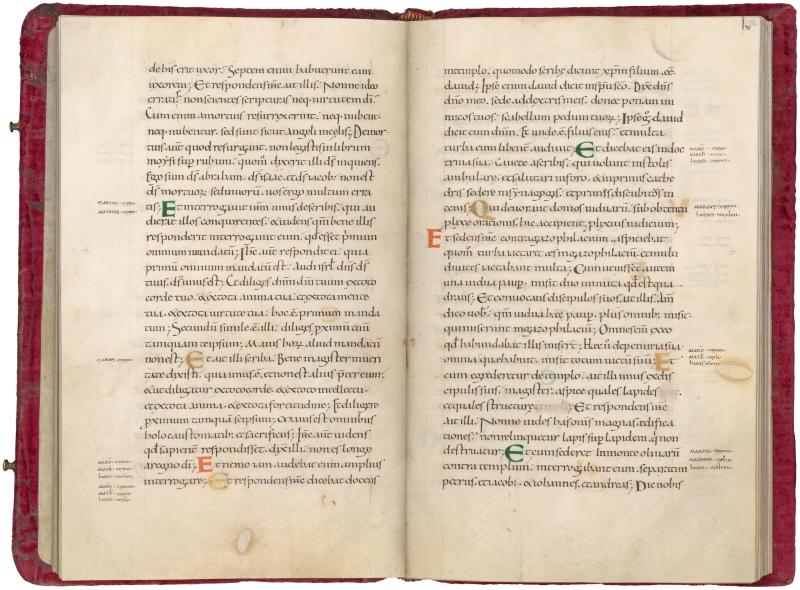 de his erit uxor; Septem enim habuerunt eam
uxorem; Et respondens ihc ait illis. Nonne ideo
erratis. non scientes scripturas neq; uirtutem di.
Cum enim a mortuis resurrexerint. neq; nubent.
neq; nubentur. sed sunt sicut angeli in celis; De mor
tuis. aut quod resurgant. non legistis in librum
moysi sup rubum. quom dixerit illi ds inquiens.
Ego sum ds abraham. ds isaac. et ds iacob. non est
ds mortuor sed uiuorum. uos ergo multum erra
tis; Et interrogauit eum unus de scribis. qui au
dierat illos conquirentes. & uidens qm bene illis
responderit interrogauit eum. qd esset primum
omnium mandatum; Ihc aut respondit ei. quia
primum omnium mandatum est. Audi isrl. dns ds
tuus. ds unus est; Et diliges dnm dm tuum ex toto
corde tuo. & ex tota anima tua. et ex tota mente
tua. & ex tota uirtute tua. hoc e primum manda
tum; Secundum simile e illi. diliges pximum tuu
tamquam teipsum; Maius hor aliud mandatu
non est; Et ait illi scriba. Bene magister in ueri
tate dixisti. quia unus e. et non est alius pter eum.
& ut diligatur ex toto corde. & ex toto intellectu.
et ex tota anima. & ex tota fortitudine; Et diligere
pximum tamqua seipsum; maius est omnibus
holocaustomatib; et sacrificiis; Ihc aut uidens
qd sapienter respondisset. dixit illi. non es longe
a regno di; Et nemo iam audebat eum amplius
interrogare; Et respondens ihc dicebat docens
in templo. quomodo scribe dicunt xpm filium ee.
dauid; Ipse enim dauid dicit in spu sco. Dix dns
dno meo. sede ad dextris meis. donec ponam ini
micos tuos. scabellum pedum tuor; Ipse g dauid
dicit eum dnm. Et unde e filius eius. et multa
turba eum libent audiuit; Et dicebat eis in doc
trina sua. Cauete a scribis. qui uolunt in stolis
ambulare. et salutari in foro. & in primis cathe
dris sedere in synagogis. et primis discubitos in
cenis; Qui deuorant domos uiduaru. sub obtentu
plixe orationis. hic accipient plixius iudicium;
Et sedens ihc contra gazophilacium. aspiciebat
quom turba iactaret aes in gazophilacium. et multi
diuites iactabant multa; Cum uenisset autem
una uidua paup. misit duo minuta qd est qua
drans; Et conuocans discipulos suos. ait illis. am
dico uob. qm uidua haec paup. plus omnib; misit.
qui miserunt in gazophilacium; Omnes em ex eo
qd habundabat illis miser; Haec u de penuria sua
omnia que habuit. misit totum uictu suu; Et
cum egrederetur de templo. ait illi unus ex dis
cipulis suis. magister. aspice quales lapides
et quales structure. Et respondens ihc
ait illi. Nonne uides has omis magnas edifica
tiones. non relinquetur lapis sup lapidem. q non
destruatur; Et cum sederet in monte oliuaru
contra templum. interrogabant eum. separatim
petrus. et iacob. & iohannes. et andreas; Dic nobis